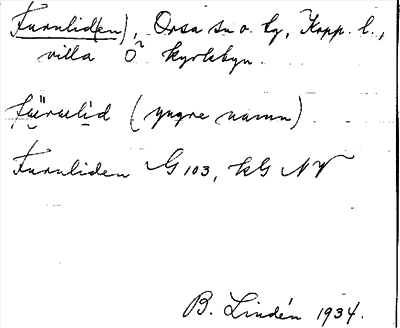 Furuliden), Orsa sn o. hg, Kopp. l.,
villa Ö kyrkbyn.
fürulid (yngre namn)
Furuliden G 103, kG NV
B. Lindén 1934.